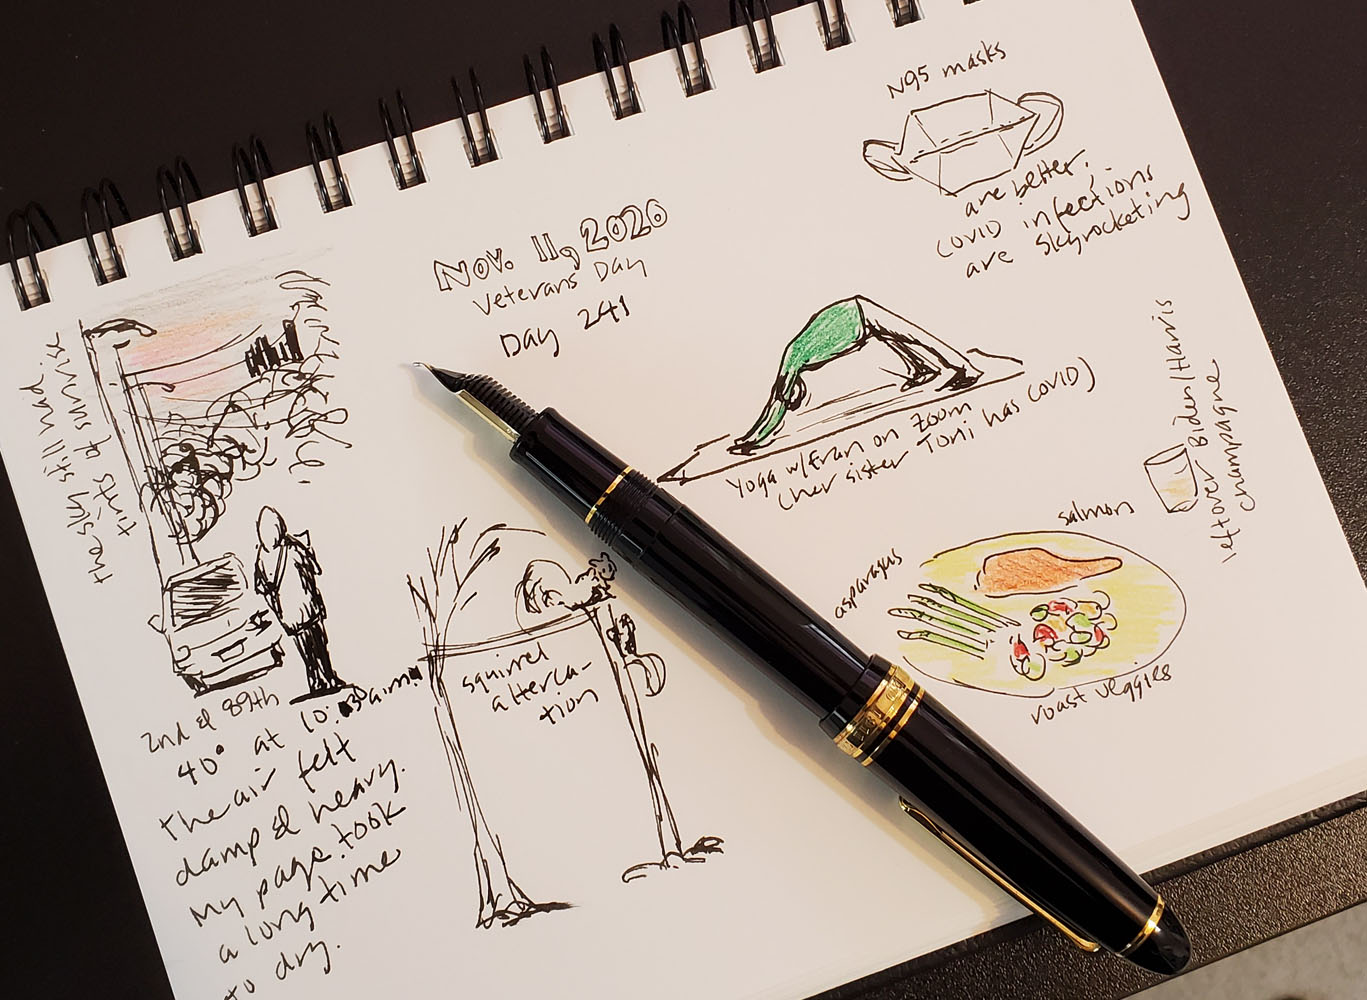 Nov. 11, 2020
Veterans Day
Day 241
N95 masks
are better.
COVID infections
are skyrocketing
the sky still had
tints of sunrise
2nd & 89th
40° at 10: am
the air felt
damp & heavy.
My page took
a long time
to dry.
squirrel
alterca-
tion
Yoga w/Fran on Zoom
(her sister Toni has COVID)
leftover Biden/Harris
champagne
salmon
asparagus
roast veggies